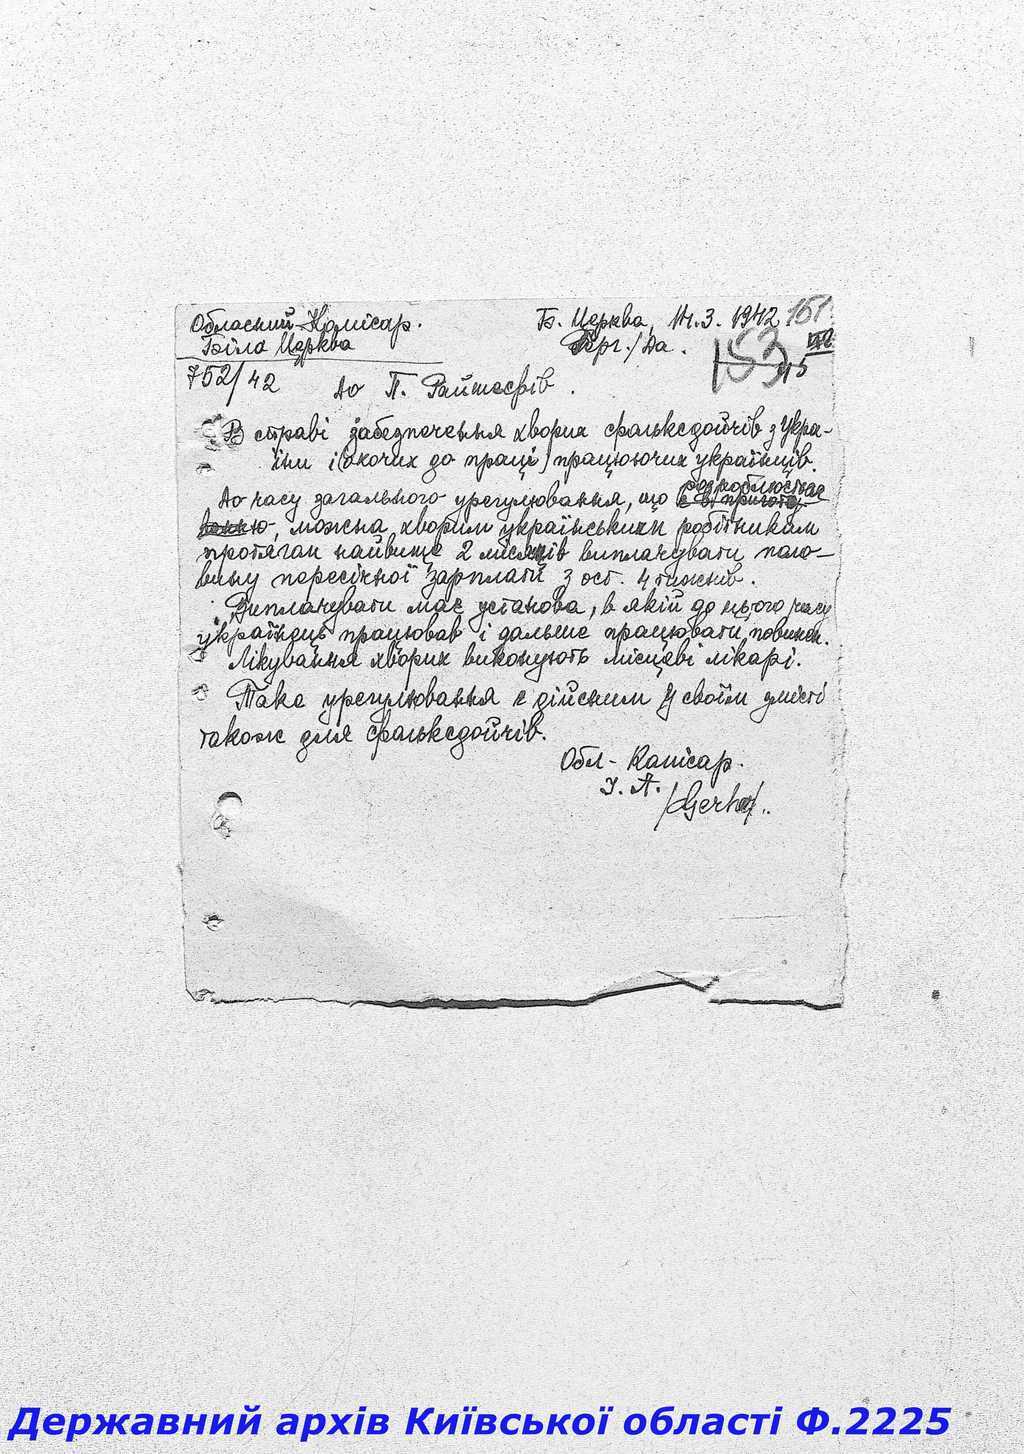 Обласний-Комісар.
Біла Церква
752/42
Б. Церква, 14.3. 1942
Герг./Да.
151.
153
До П. Райшефів.
В справі забезпечення хворих фольксдойчів з Укра-
їни і (охочих до праці) працюючих українців.
До часу загального урегулювання, що розроблюється
є в пригото-
ванню, можна хворим українським робітникам
протягом найвище 2 місяців виплачувати поло-
вину пересічної зарплати з ост. 4 тижнів.
Виплачувати має установа, в якій до цього часу
українець працював і дальше працювати повинен.
Лікування хворих виконують місцеві лікарі.
Таке урегулювання є дійсним у своїм змісті
також для фольксдойчів.
Обл-Комісар.
І. А.
Державний архів Київської області Ф.2225